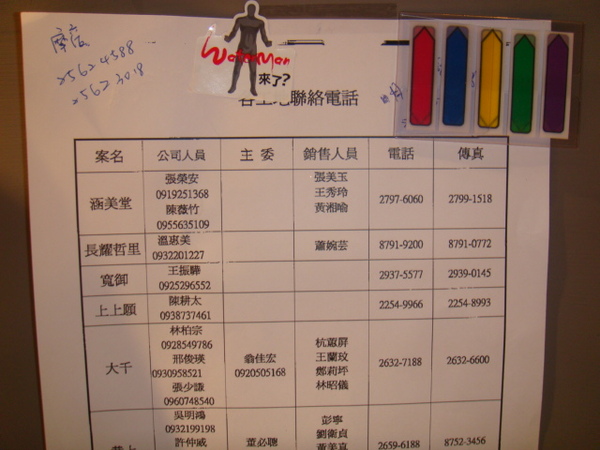 摩庭
25624588
25623018
WaterMan
來了?
各工地聯絡電話
案名 公司人員 主委 銷售人員 電話 傳真
涵美堂 張榮安 0919251368 陳薇竹 0955635109 張美玉 王秀玲 黃湘喻 2797-6060 2799-1518
長耀哲里 溫惠美 0932201227 蕭婉芸 8791-9200 8791-0772
寬御 王振驊 0925296552 2937-5577 2939-0145
上上願 陳耕太 0938737461 2254-9966 2254-8993
大千 林柏宗 0928549786 邢俊瑛 0930958521 張少謙 0960748540 翁佳宏 0920505168 杭蕙屏 王蘭玟 鄭莉坪 林昭儀 2632-7188 2632-6600
吳明鴻 0932199198 許仲威 董必聰 彭寧 劉衛貞 董美真 2659-6188 8752-3456